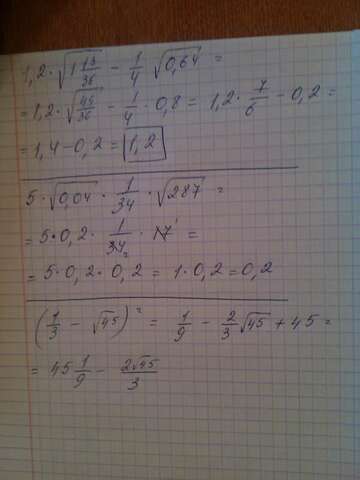 1,2·√(1 13/36) − 1/4 √0,64 =
= 1,2·√(49/36) − 1/4 · 0,8 = 1,2 · 7/6 − 0,2 =
= 1,4 − 0,2 = 1,2
5·√0,04 · 1/34 · √287 =
= 5·0,2 · 1/34₂ · 17¹ =
= 5·0,2·0,2 = 1·0,2 = 0,2
(1/3 − √45)² = 1/9 − 2/3 √45 + 45 =
= 45 1/9 − 2√45/3